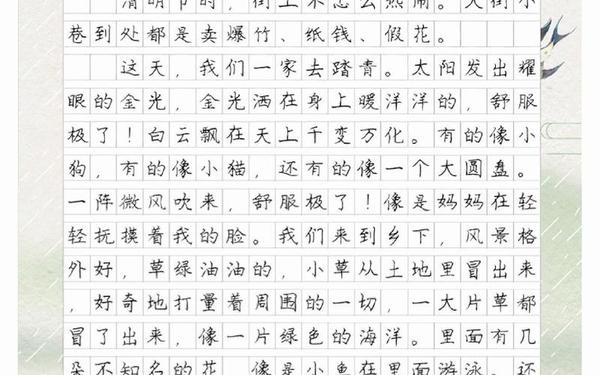 清明节时，街上不怎么热闹。大街小
巷到处都是卖爆竹、纸钱、假花。
这天，我们一家去踏青。太阳发出耀
眼的金光，金光洒在身上暖洋洋的，舒服
极了！白云飘在天上千变万化。有的像小
狗，有的像小猫，还有的像一个大圆盘。
一阵微风吹来，舒服极了！像是妈妈在轻
轻抚摸着我的脸。我们来到乡下，风景格
外好，草绿油油的，小草从土地里冒出来
，好奇地打量着周围的一切，一大片草都
冒了出来，像一片绿色的海洋。里面有几
朵不知名的花，像是小鱼在里面游泳。还